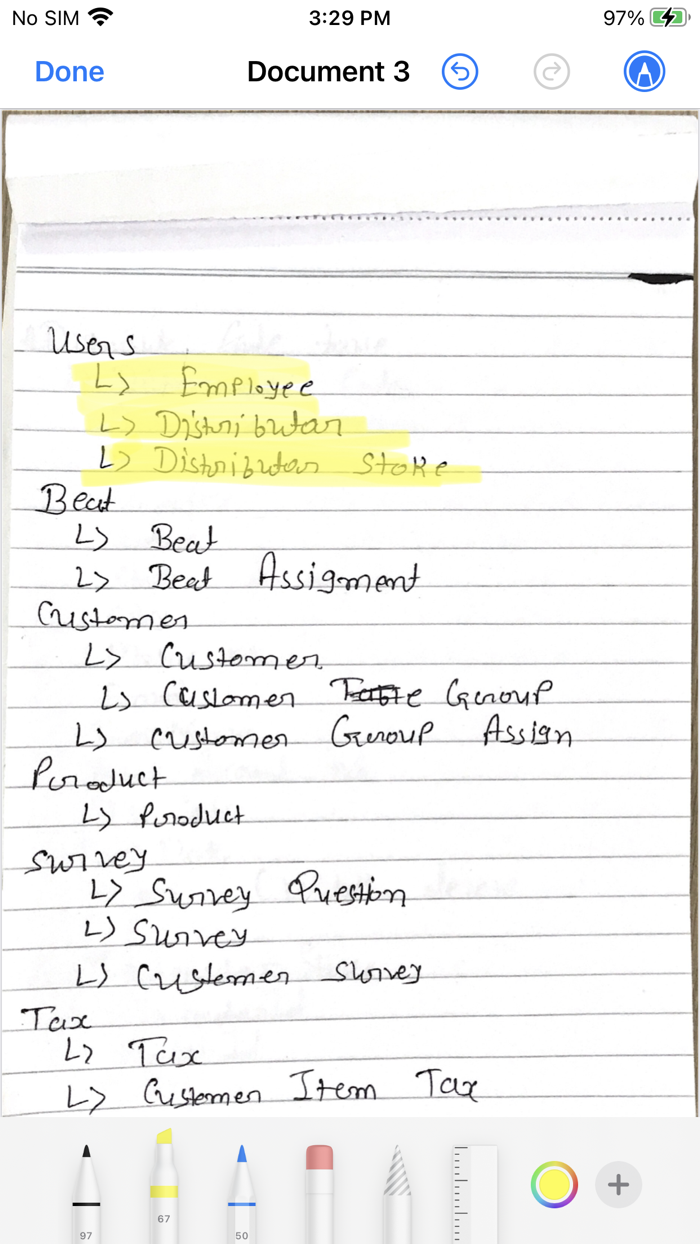 No SIM 3:29 PM 97%
Done Document 3
Users
↳ Employee
↳ Distributar
↳ Distributar Stoke
Beat
↳ Beat
↳ Beat Assigment
Customer
↳ Customer
↳ Customer Table Group
↳ Customer Group Assign
Product
↳ Product
Survey
↳ Survey Question
↳ Survey
↳ Customer Survey
Tax
↳ Tax
↳ Customer Item Tax
97 67 50